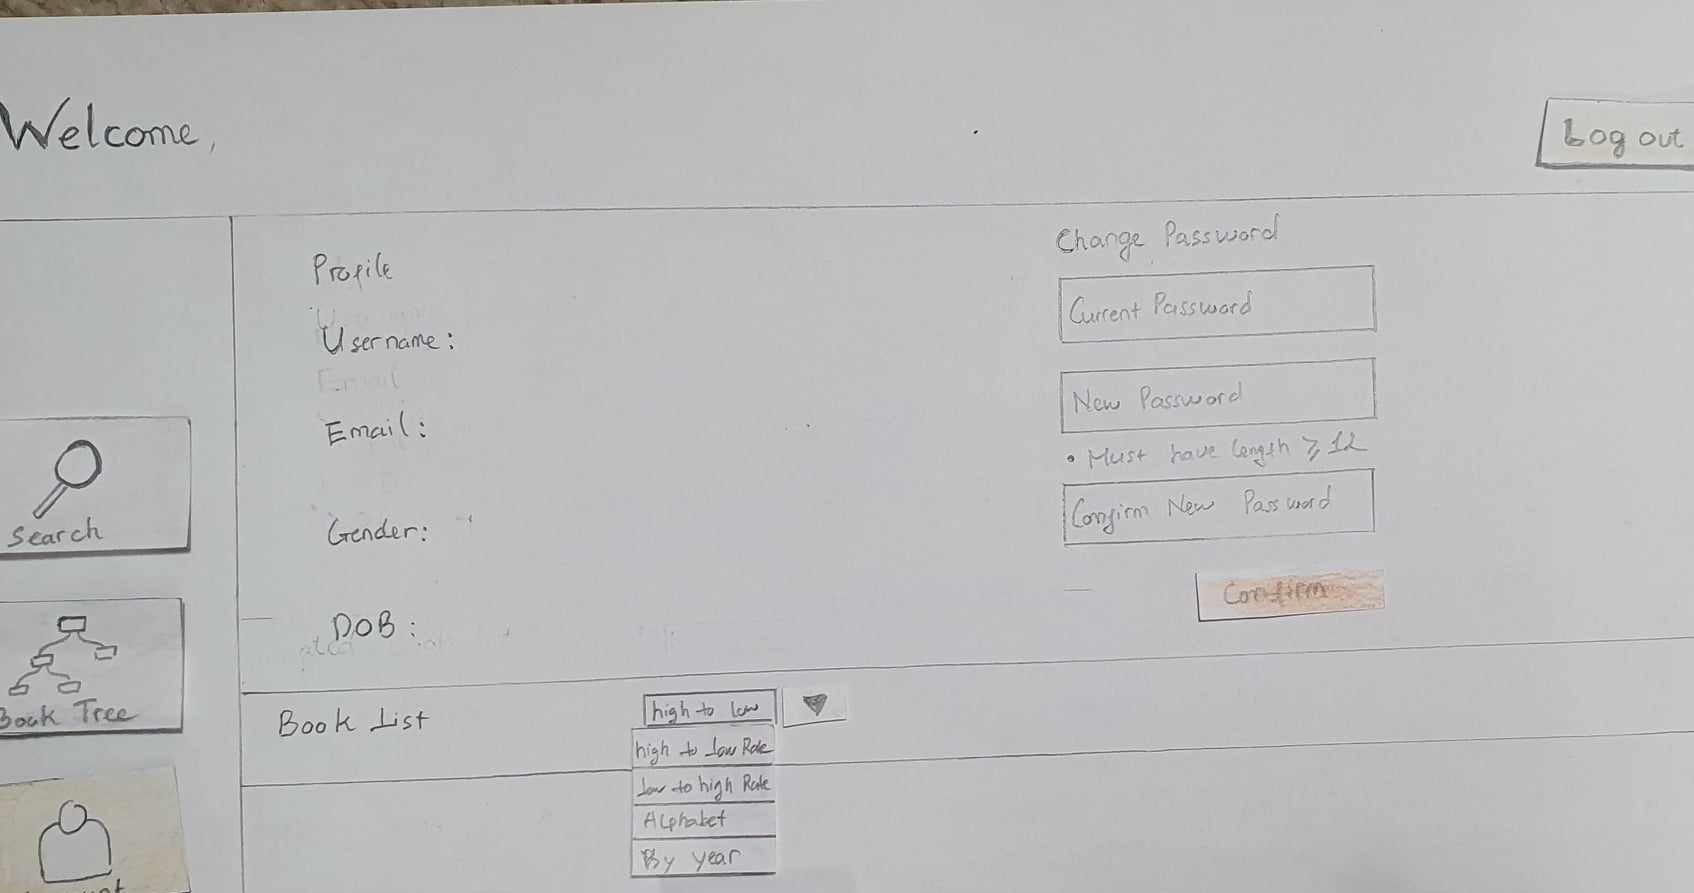 Welcome,
Log out
Search
Book Tree
Profile
Username:
Email
Email:
Gender:
DOB:
Change Password
Current Password
New Password
• Must have length ⩾ 12
Confirm New Password
Confirm
Book List
high to low
high to low Rate
low to high Rate
Alphabet
By year